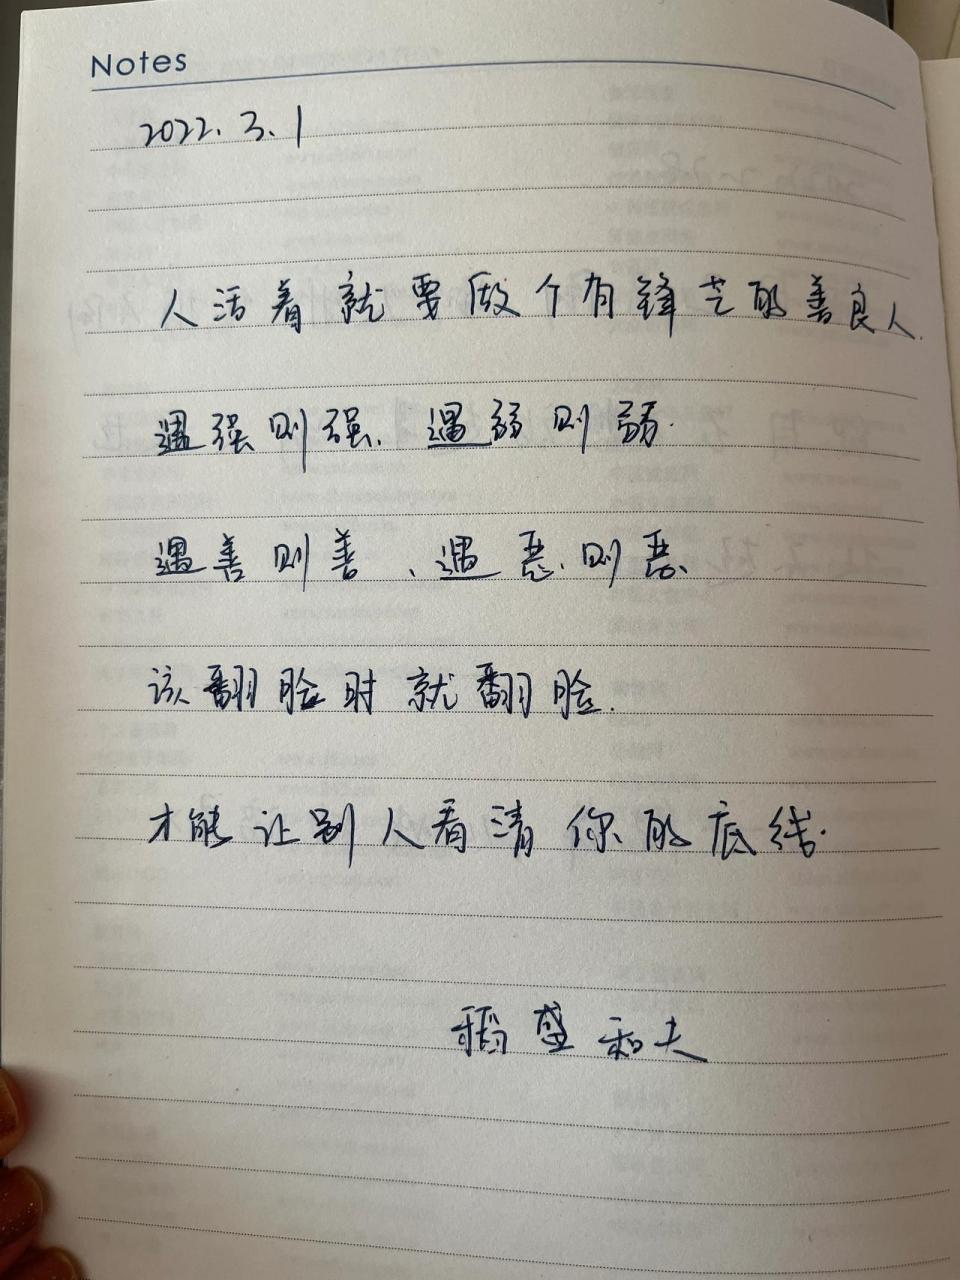 Notes
2022.3.1
人活着就要做个有锋芒的善良人.
遇强则强、遇弱则弱.
遇善则善、遇恶、则恶、
该翻脸时就翻脸.
才能让别人看清你的底线.
稻盛和夫